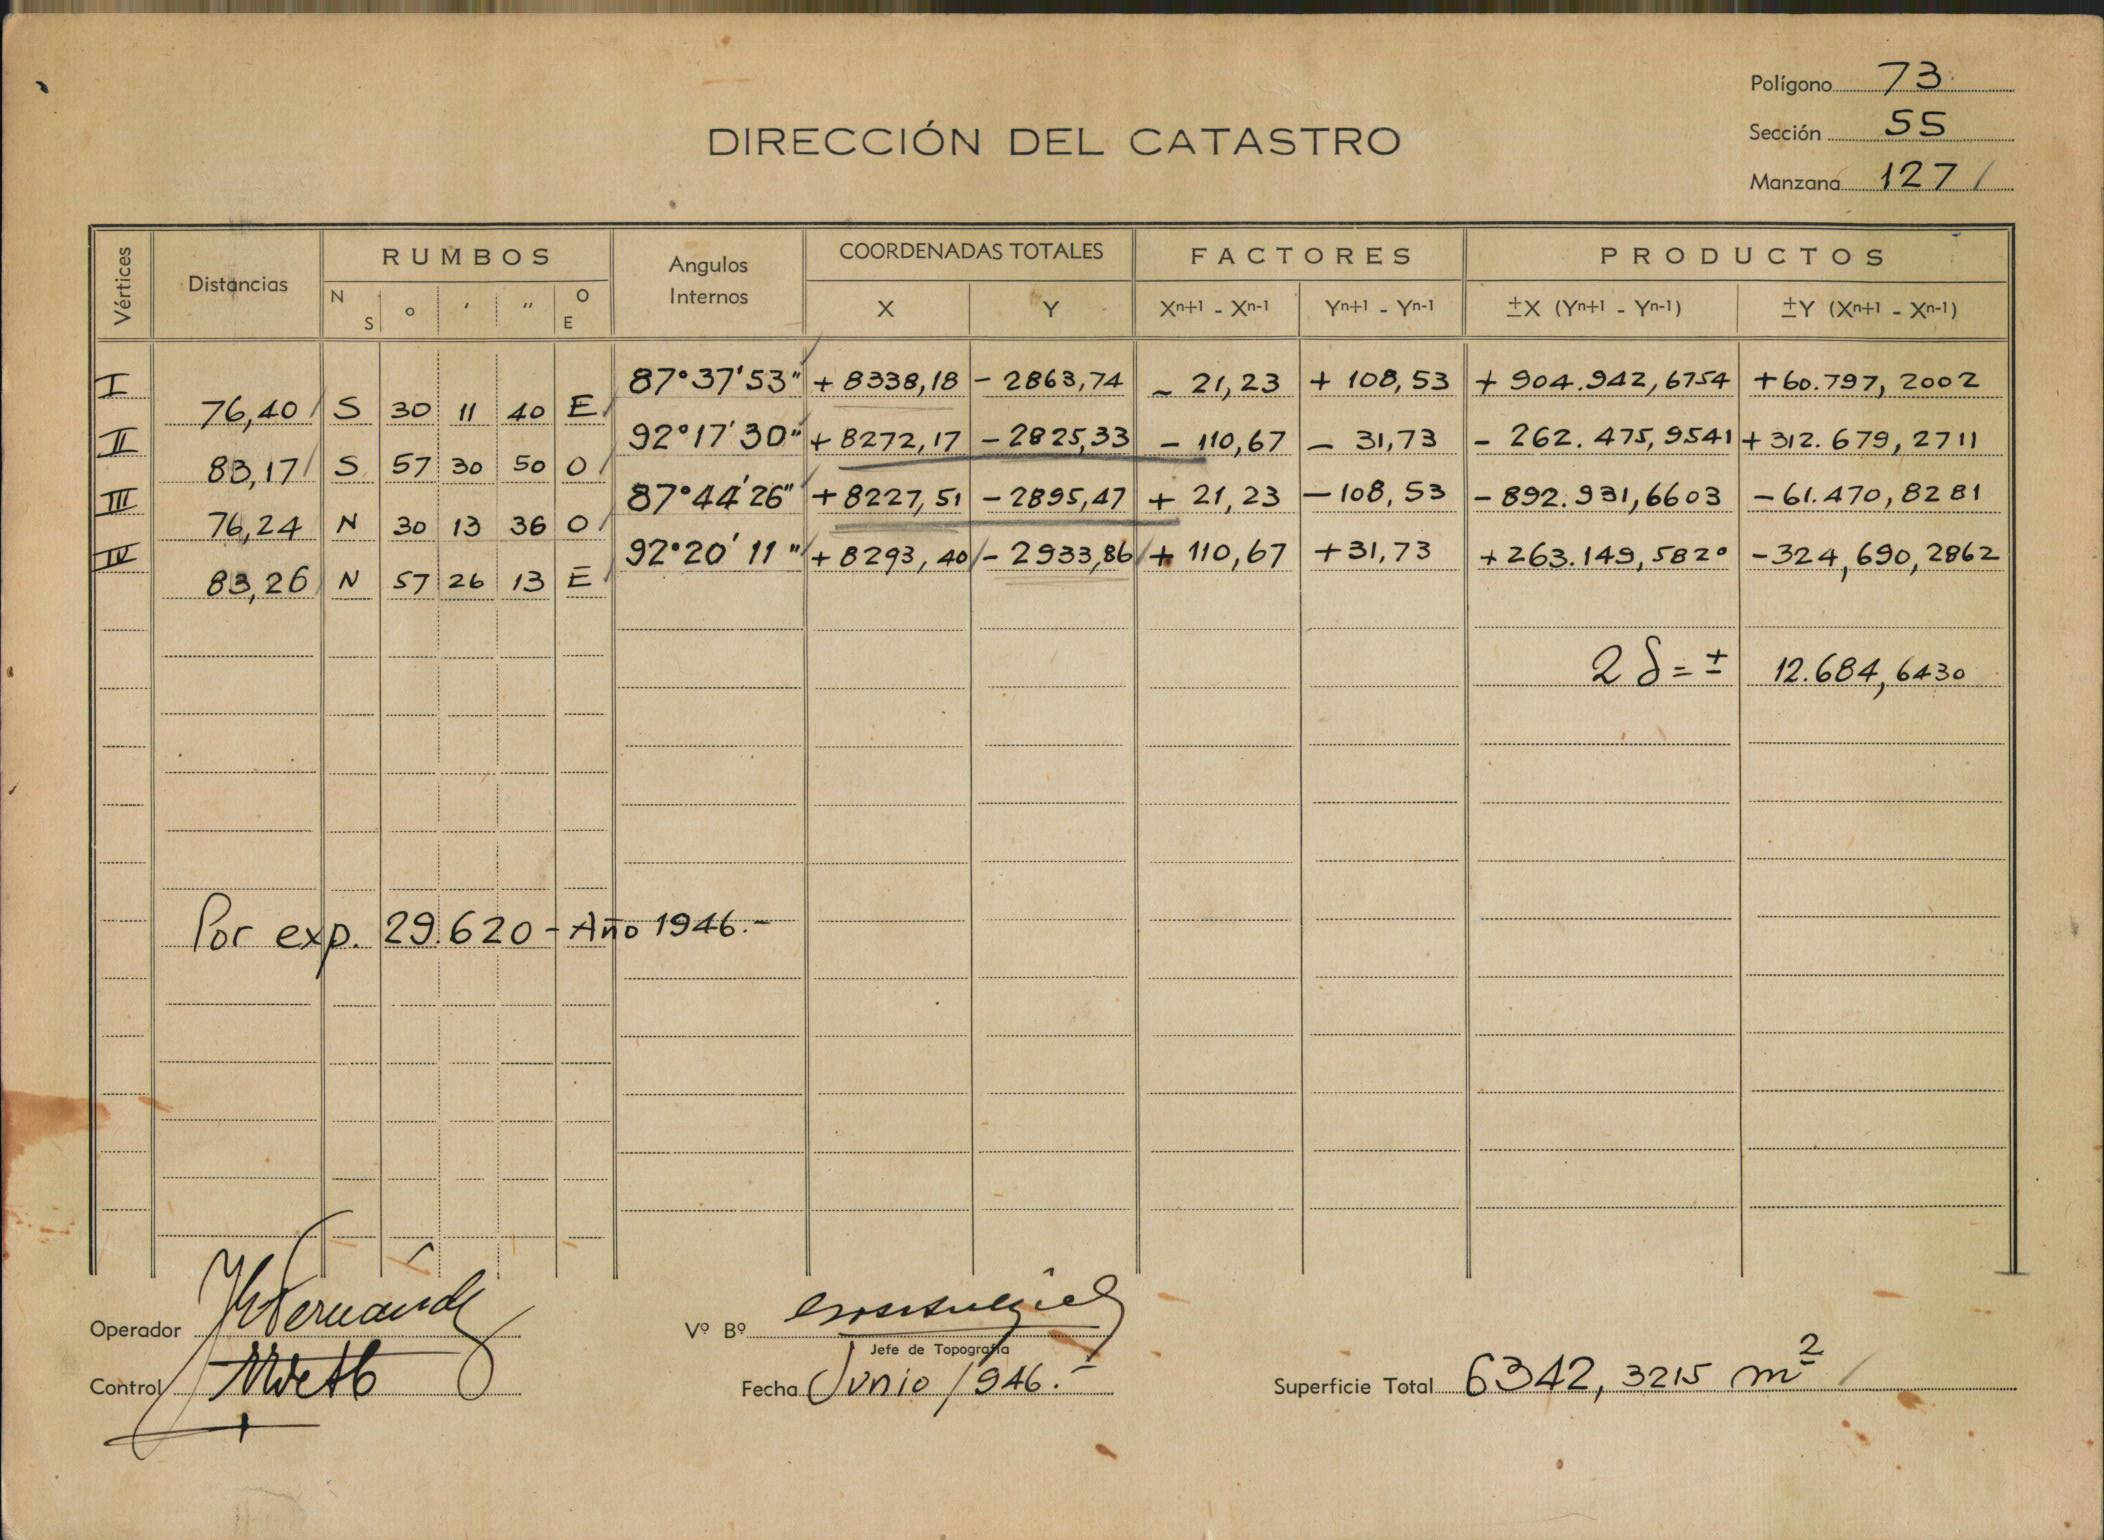 Polígono 73
Sección 55
Manzana 127
DIRECCIÓN DEL CATASTRO
Vértices Distancias RUMBOS Angulos Internos COORDENADAS TOTALES FACTORES PRODUCTOS
N S ° ' " O E X Y Xn+1 - Xn-1 Yn+1 - Yn-1 ±X (Yn+1 - Yn-1) ±Y (Xn+1 - Xn-1)
I 87°37'53" + 8338,18 - 2863,74 - 21,23 + 108,53 + 904.942,6754 + 60.797,2002
76,40 S 30 11 40 E
II 92°17'30" + 8272,17 - 2825,33 - 110,67 - 31,73 - 262.475,9541 + 312.679,2711
83,17 S 57 30 50 O
III 87°44'26" + 8227,51 - 2895,47 + 21,23 - 108,53 - 892.931,6603 - 61.470,8281
76,24 N 30 13 36 O
IV 92°20'11" + 8293,40 - 2933,86 + 110,67 + 31,73 + 263.149,5820 - 324,690,2862
83,26 N 57 26 13 E
2 δ = ± 12.684,6430
Por exp. 29.620 - Año 1946.-
Operador
Vº Bº
Jefe de Topografía
Control
Fecha Junio 1946.-
Superficie Total 6342,3215 m²